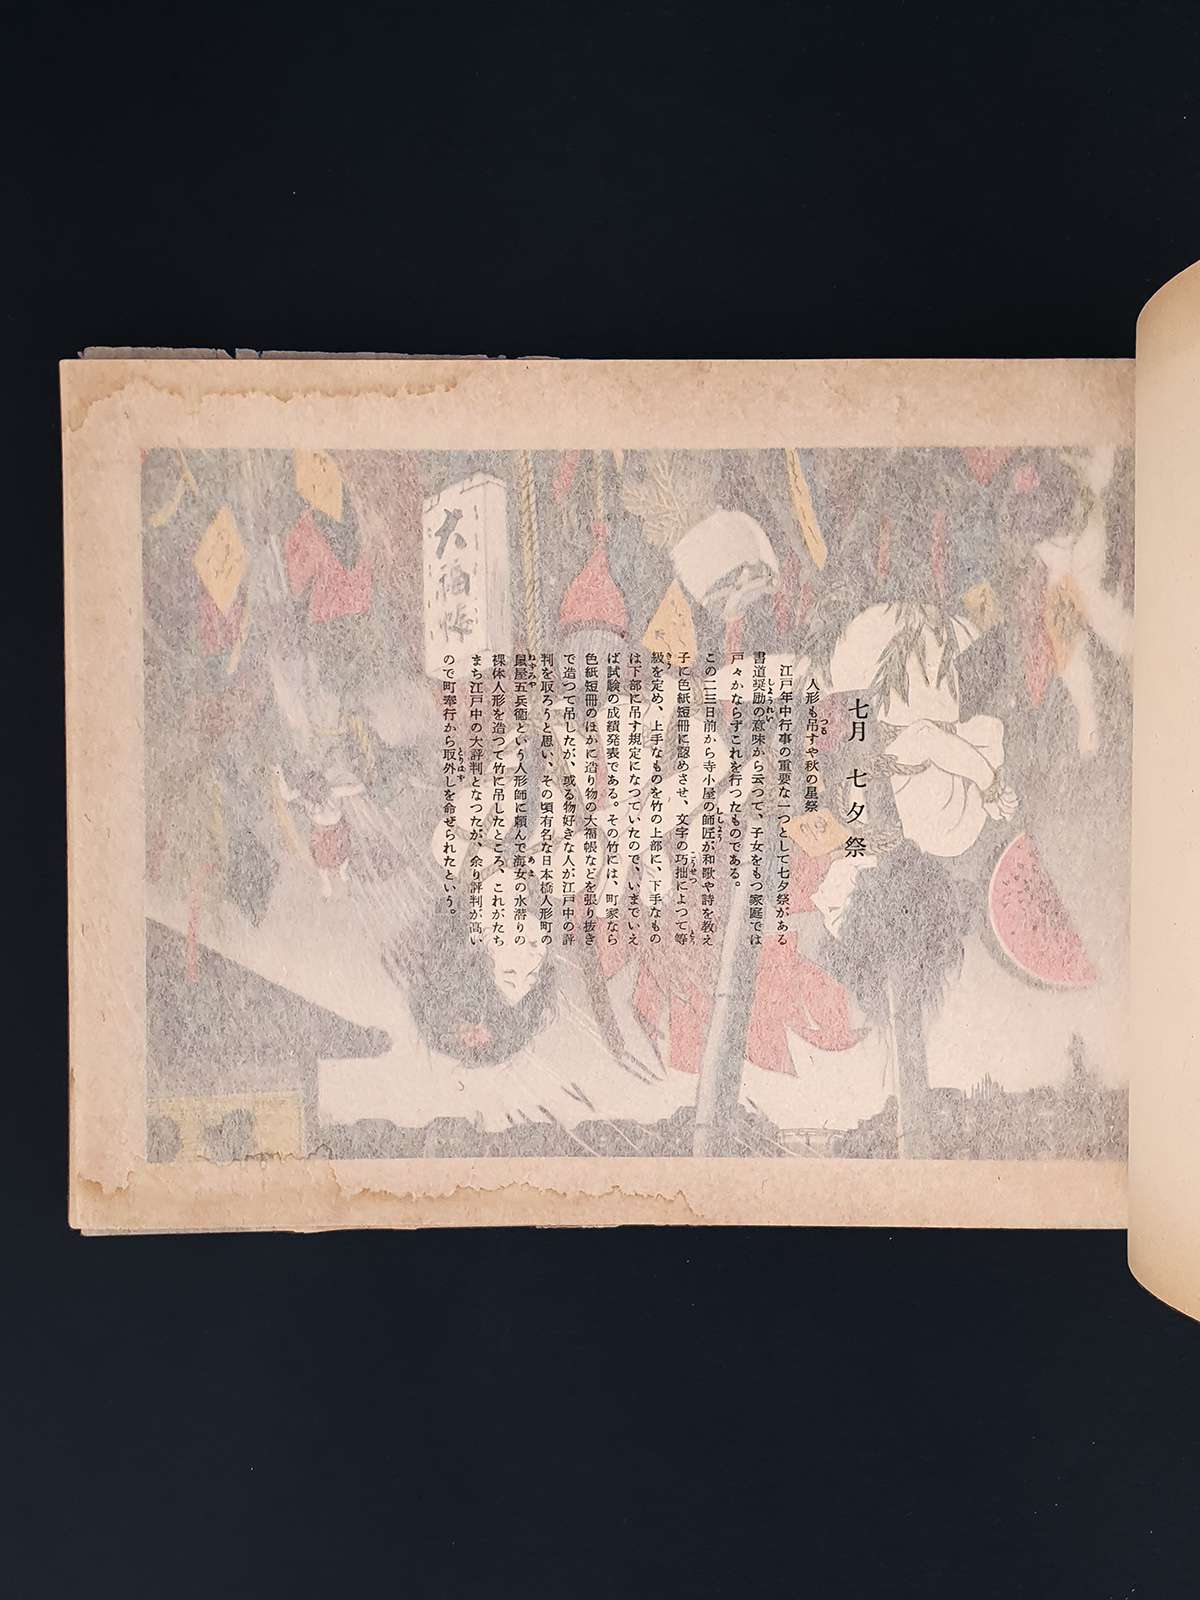 七月 七夕祭
人形も吊すや秋の星祭
江戸年中行事の重要な一つとして七夕祭がある
書道奨励の意味から云つて、子女をもつ家庭では
戸々かならずこれを行つたものである。
この二三日前から寺小屋の師匠が和歌や詩を教え
子に色紙短冊に認めさせ、文字の巧拙によつて等
級を定め、上手なものを竹の上部に、下手なもの
は下部に吊す規定になつていたので、いまでいえ
ば試験の成績発表である。その竹には、町家なら
色紙短冊のほかに造り物の大福帳などを張り抜き
で造つて吊したが、或る物好きな人が江戸中の評
判を取ろうと思い、その頃有名な日本橋人形町の
鼠屋五兵衛という人形師に頼んで海女の水潜りの
裸体人形を造つて竹に吊したところ、これがたち
まち江戸中の大評判となつたが、余り評判が高い
ので町奉行から取外しを命ぜられたという。
大福帳